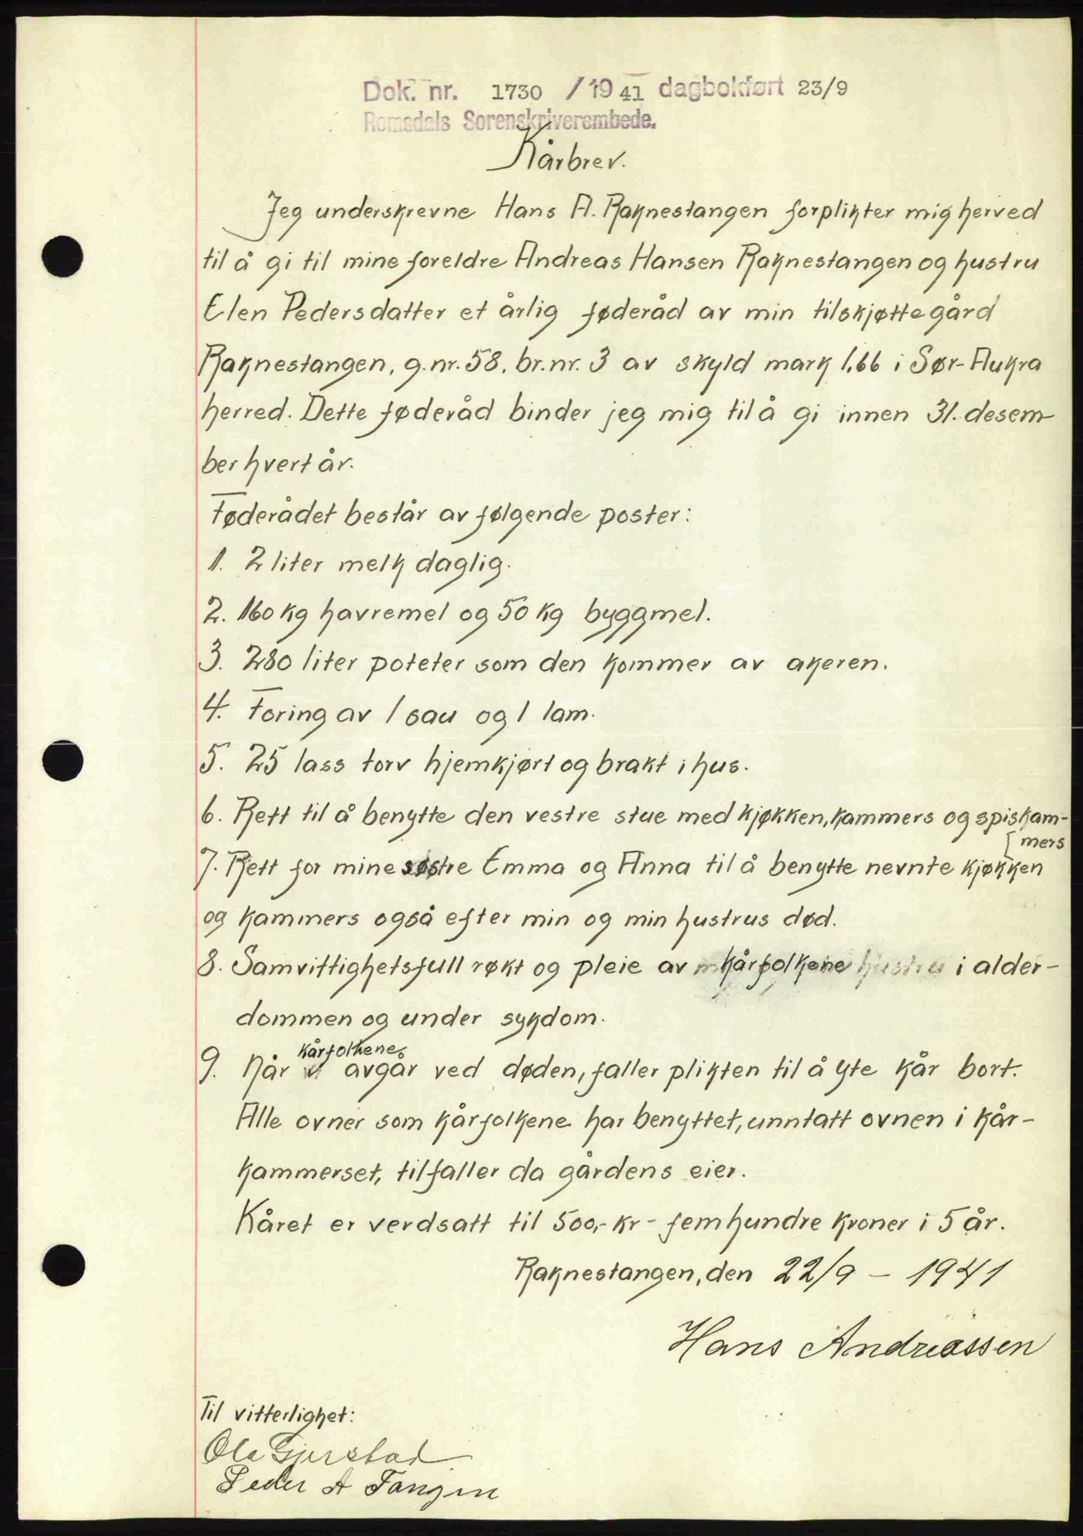 Dok. nr. 1730 /1941 dagbokført 23/9
Romsdals Sorenskriverembede.
Kårbrev.
Jeg underskrevne Hans A. Raknestangen forplikter mig herved
til å gi til mine foreldre Andreas Hansen Raknestangen og hustru
Elen Pedersdatter et årlig føderåd av min tilskjøtte gård
Raknestangen, g.nr. 58, br.nr. 3 av skyld mark 1,66 i Sør-Aukra
herred. Dette føderåd binder jeg mig til å gi innen 31. desem-
ber hvert år.
Føderådet består av følgende poster:
1. 2 liter melk daglig.
2. 160 kg havremel og 50 kg byggmel.
3. 280 liter poteter som den kommer av akeren.
4. Foring av 1 sau og 1 lam.
5. 25 lass torv hjemkjørt og brakt i hus.
6. Rett til å benytte den vestre stue med kjøkken, kammers og spiskam-
[mers
7. Rett for mine søstre Emma og Anna til å benytte nevnte kjøkken
og kammers også efter min og min hustrus død.
8. Samvittighetsfull røkt og pleie av kårfolkene i alder-
dommen og under sykdom.
9. Når kårfolkene avgår ved døden, faller plikten til å yte kår bort.
Alle ovner som kårfolkene har benyttet, unntatt ovnen i kår-
kammerset, tilfaller da gårdens eier.
Kåret er verdsatt til 500,- kr - femhundre kroner i 5 år.
Raknestangen, den 22/9 - 1941
Hans Andreassen
Til vitterlighet:
Ola Gjerstad
Peder A Tangen